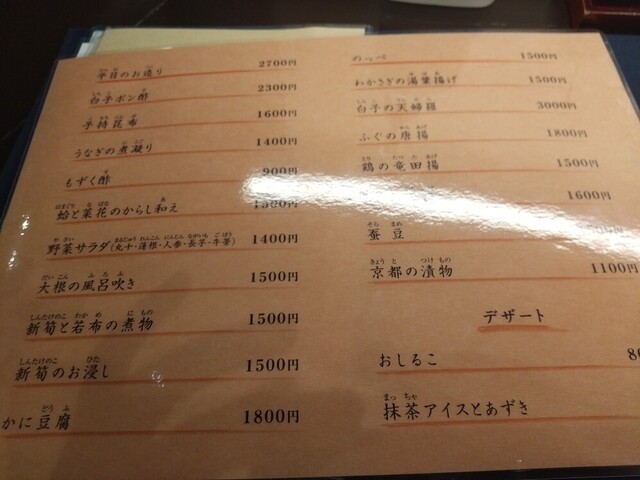 平目のお造り 2700円
白子ポン酢 2300円
子持昆布 1600円
うなぎの煮凝り 1400円
もずく酢 900円
蛤と菜花のからし和え
野菜サラダ(丸十・蓮根・人参・長芋・牛蒡) 1400円
大根の風呂吹き 1500円
新筍と若布の煮物 1500円
新筍のお浸し 1500円
かに豆腐 1800円
のっぺ 1500円
わかさぎの湯葉揚げ 1500円
白子の天婦羅 3000円
ふぐの唐揚 1800円
鶏の竜田揚 1500円
1600円
蚕豆
京都の漬物 1100円
デザート
おしるこ
抹茶アイスとあずき